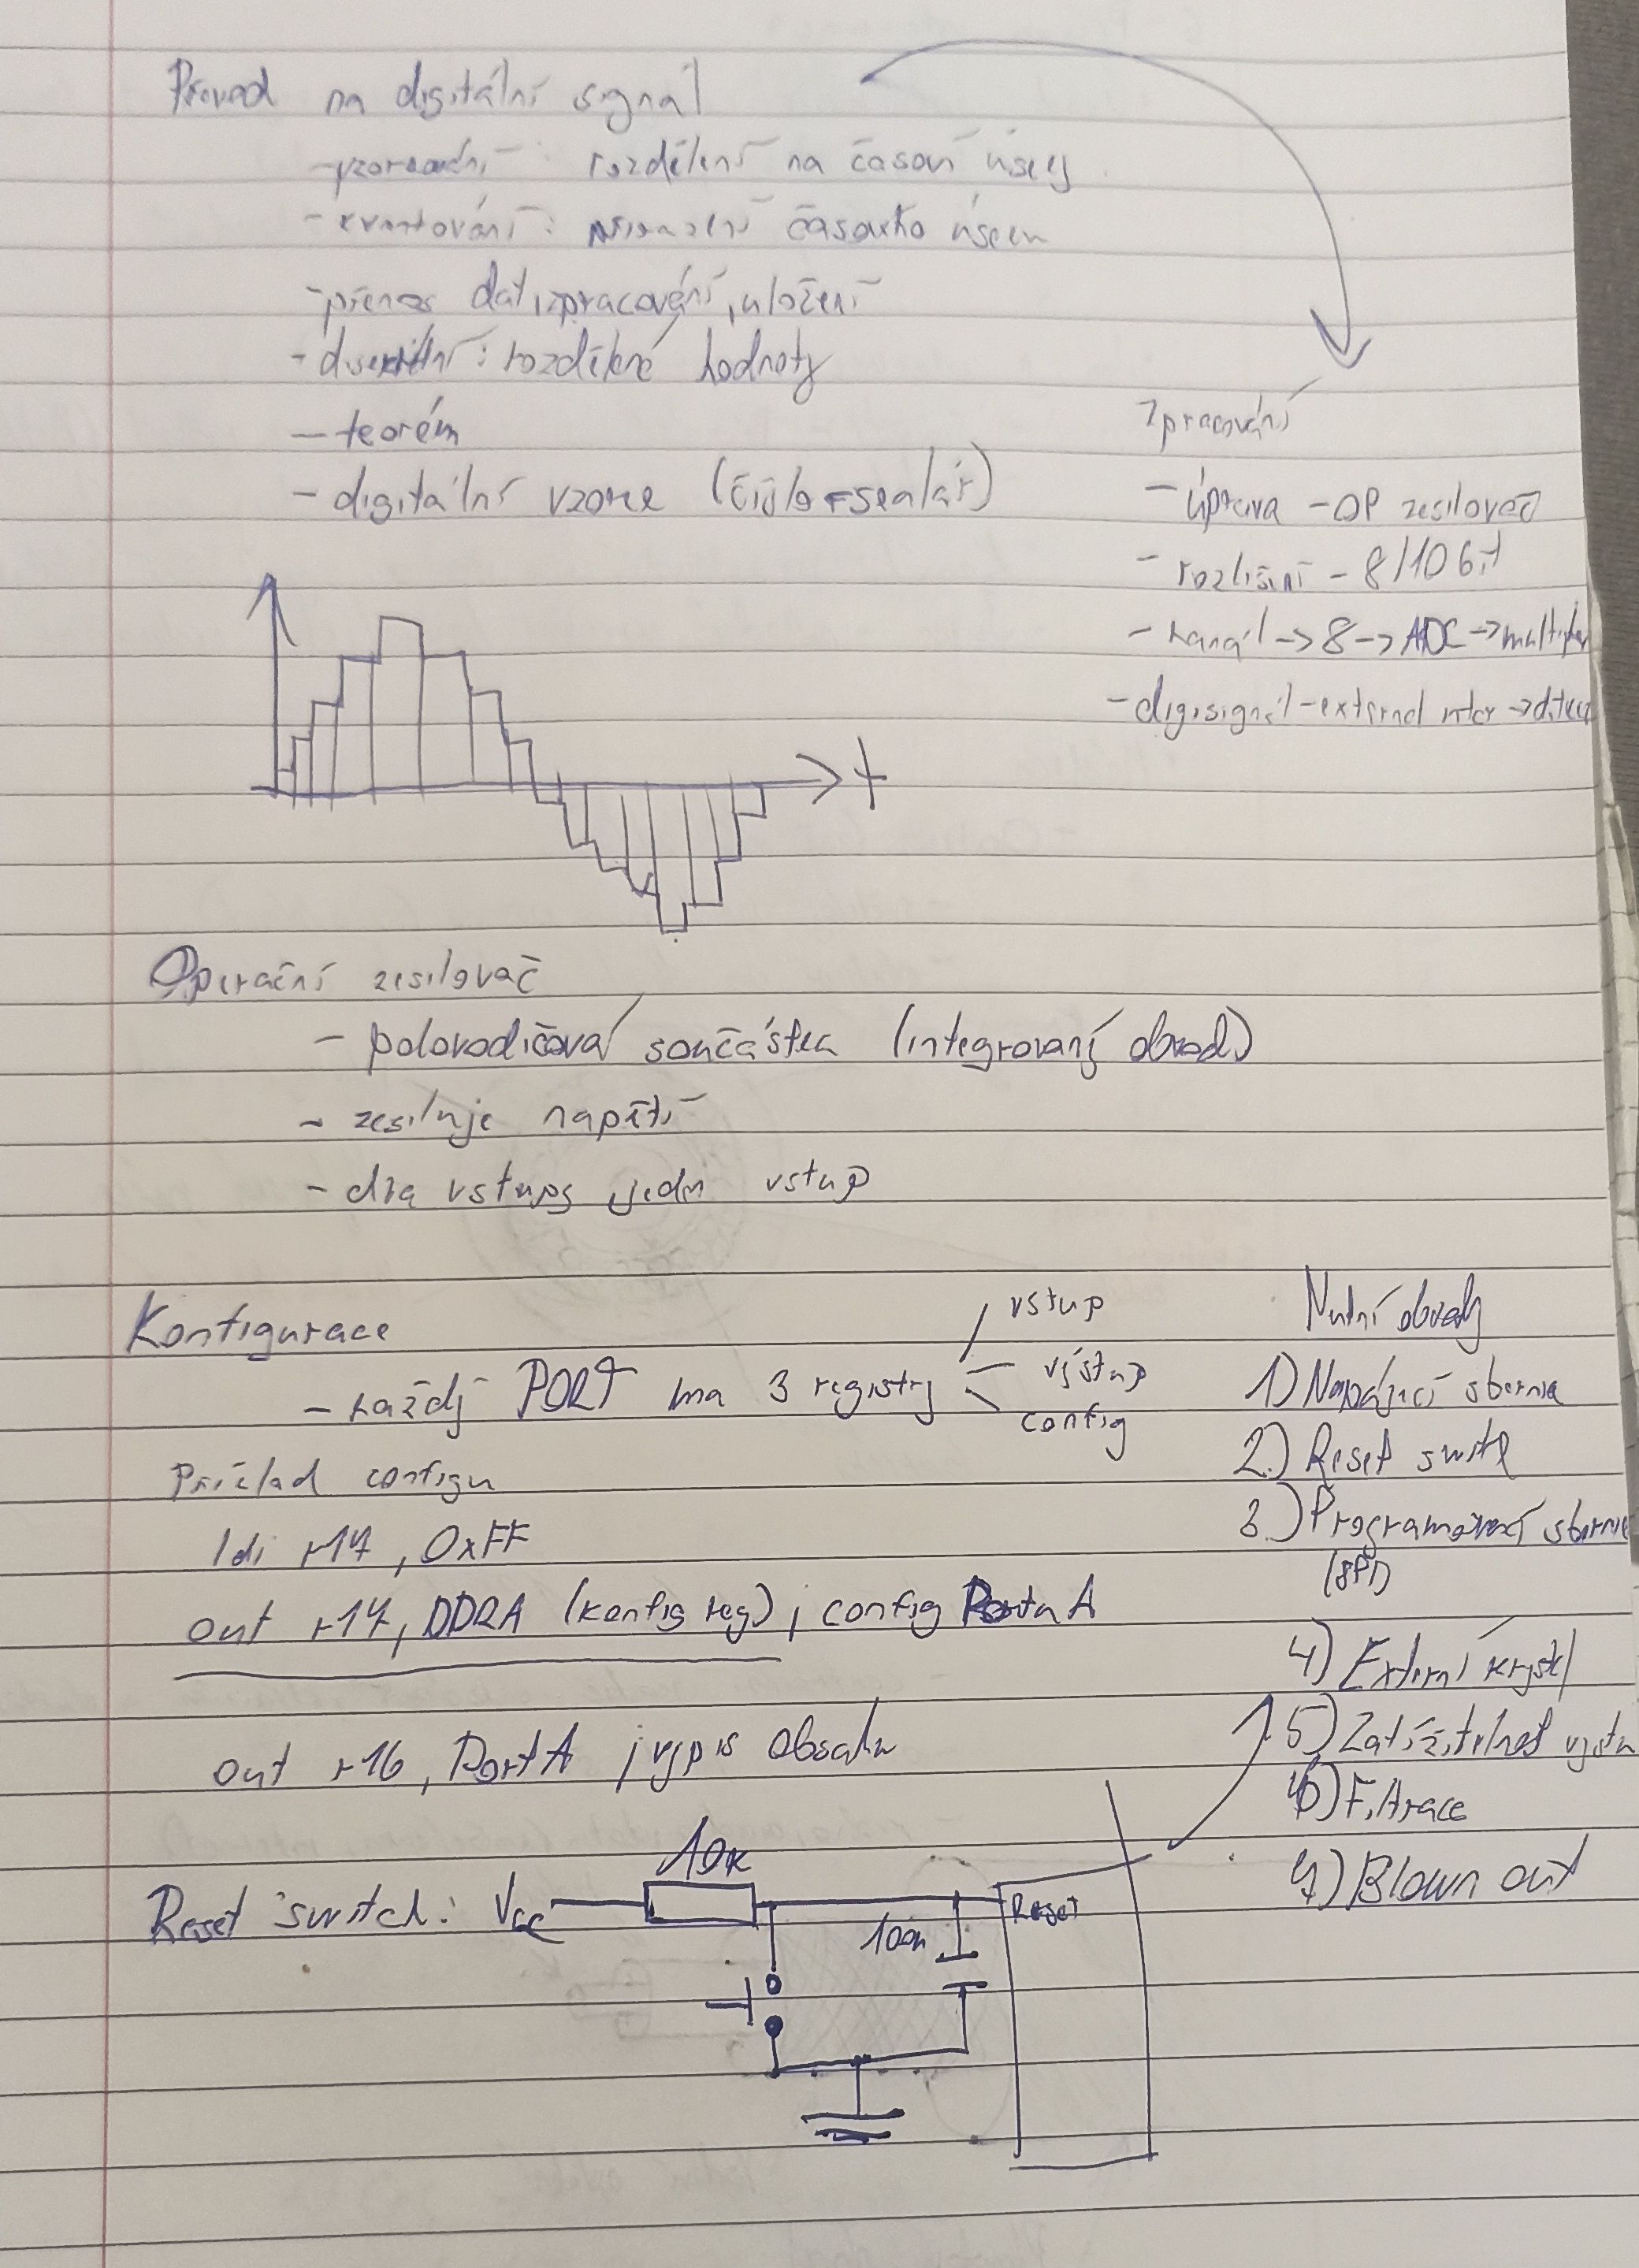 Převod na digitální signál
- vzorkování : rozdělení na časoví úseky
- kvantování : časového úseku
- přenos dat, zpracování, uložení
- diskrétní : rozdělené hodnoty
- teorém
- digitální vzorek (číslo = skalár)
t
Zpracování
- úprava - OP zesilovač
- rozlišení - 8/10 bit
- kanál -> 8 -> ADC -> multiplex
- digi signál - external inter ->
Operační zesilovač
- polovodičová součástka (integrovaný obvod)
- zesiluje napětí
- dva vstupy jedn vstup
Konfigurace
- každý PORT ma 3 registry
vstup
výstup
config
Příklad configu
ldi r17, 0xFF
out r17, DDRA (konfig reg) ; config Portu A
out r16, PortA ; výpis obsahu
Nutní obvody
1) Napájecí sběrnice
2.) Reset
3.) Programovací sběrnice
(SPI)
4) Externí krystal
5) Zatížitelnost výstu
6) Filtrace
7) Blown out
Reset switch: Vcc
10k
100n
Reset